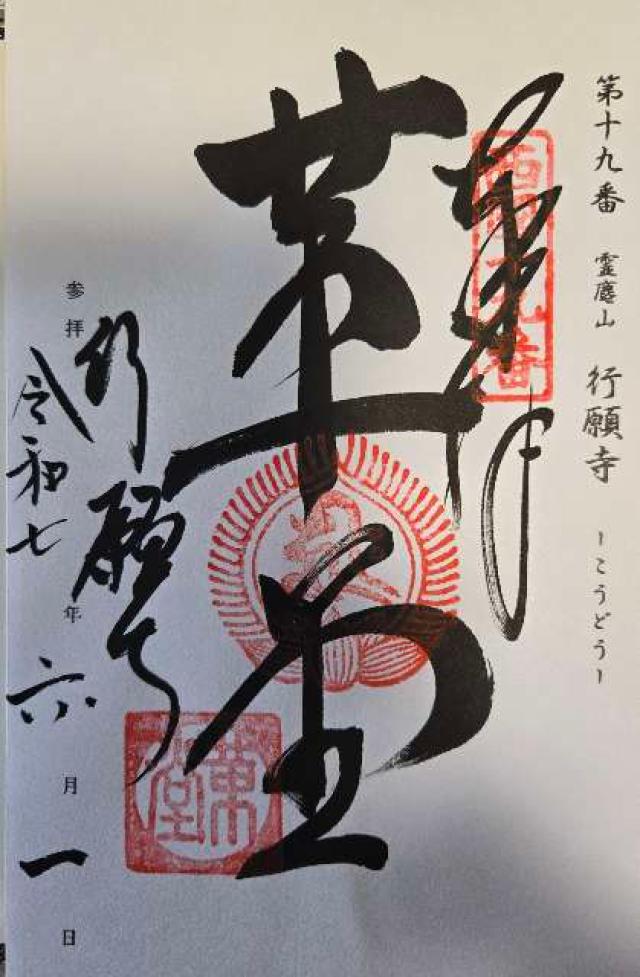 第十九番 霊麀山 行願寺 ーこうどうー
奉拝
西国十九番
革堂
行願寺
参拝 令和七年六月一日
革堂